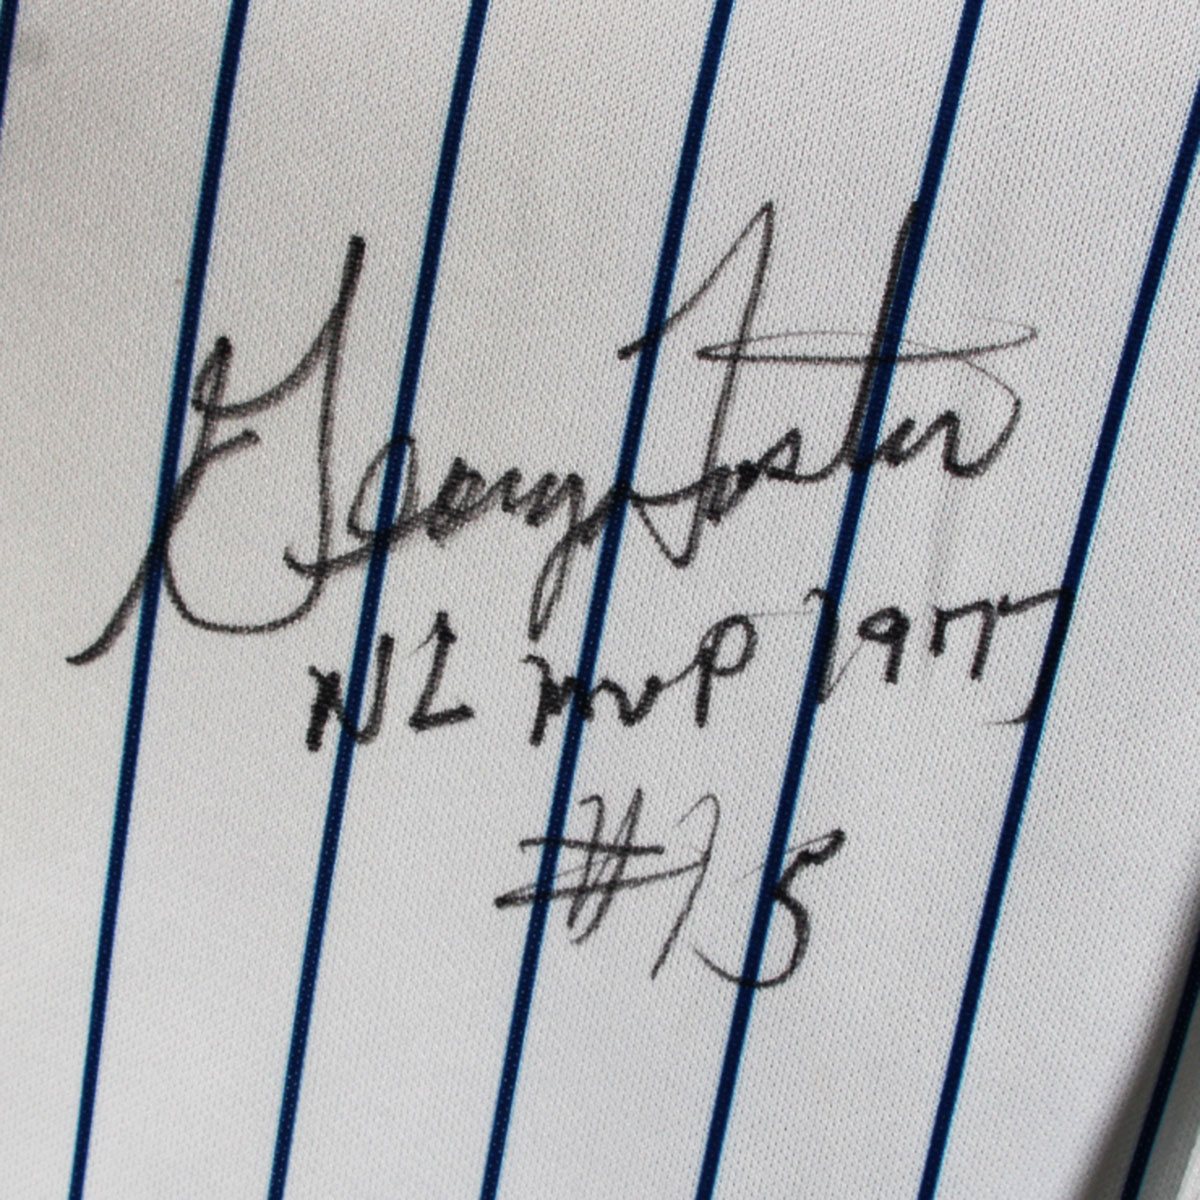 George Foster
NL MVP 1977
#15